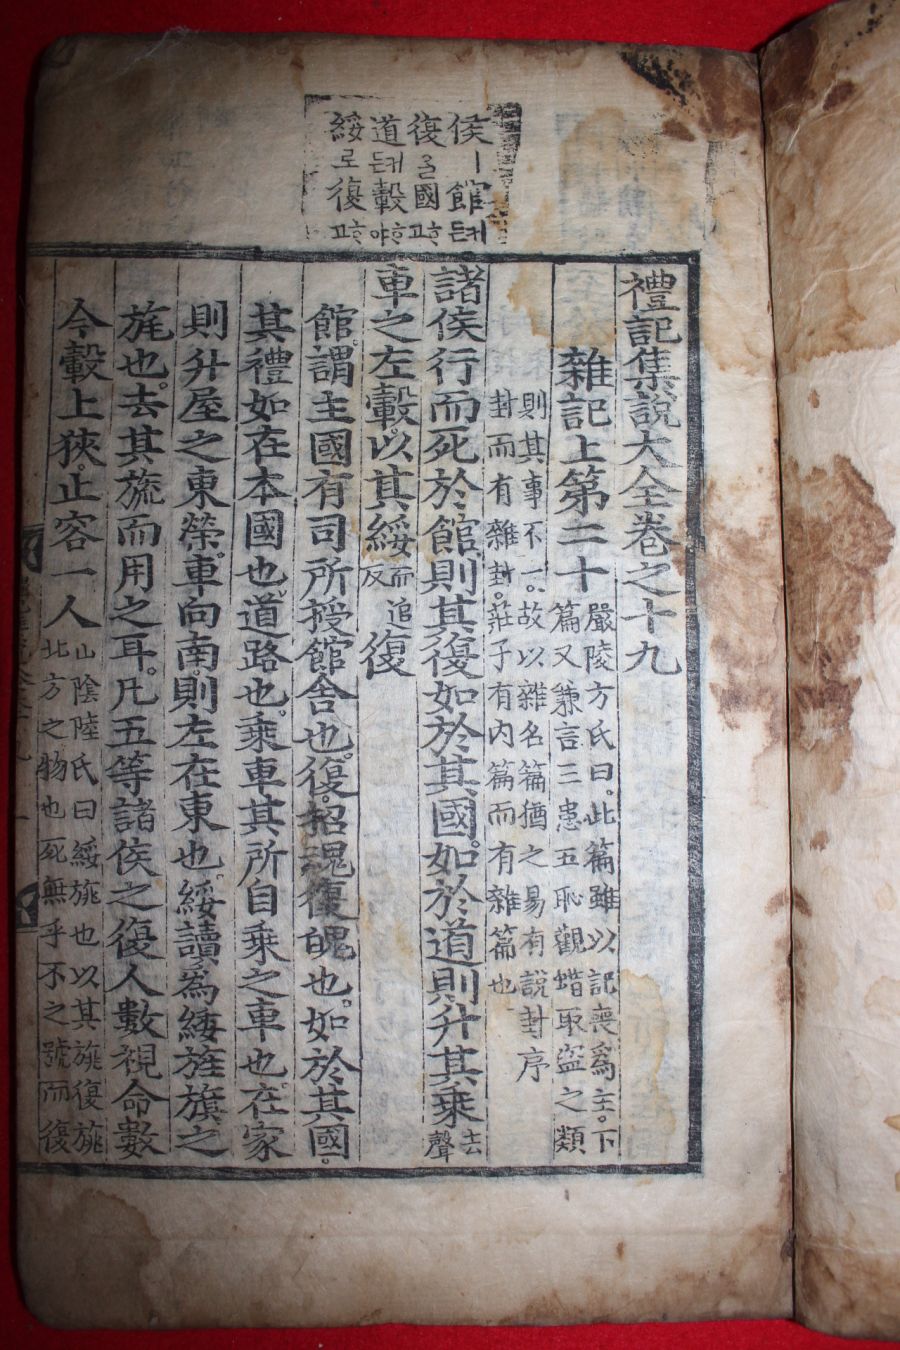 侯ㅣ館든제
復을國고ᄒᆞ
道든제轂야ᄒᆞ
綏로復고ᄒᆞ
禮記集說大全卷之十九
雜記上第二十
嚴陵方氏曰此篇雖以記喪爲主下
篇又兼言三患五恥觀蜡取盜之類
則其事不一故以雜名篇猶之易有說卦序
卦而有雜卦莊子有內篇而有雜篇也
諸侯行而死於館則其復如於其國如於道則升其乘去聲
車之左轂以其綏而追反復
館謂主國有司所授館舍也復招魂復魄也如於其國
其禮如在本國也道路也乘車其所自乘之車也在家
則升屋之東榮車向南則左在東也綏讀爲緌旌旗之
旄也去其旒而用之耳凡五等諸侯之復人數視命數
今轂上狹止容一人
山陰陸氏曰綏旄也以其旄復旄
北方之物也死無乎不之號而復